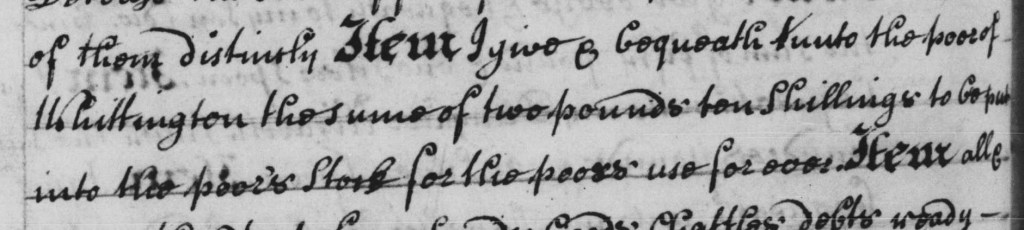 of them distinctly Item I give & bequeath unto the poor of
Whittington the sume of two pounds ten shillings to be put
into the poor's Stock for the poors use for ever. Item all &
goods Chattles debts ready –